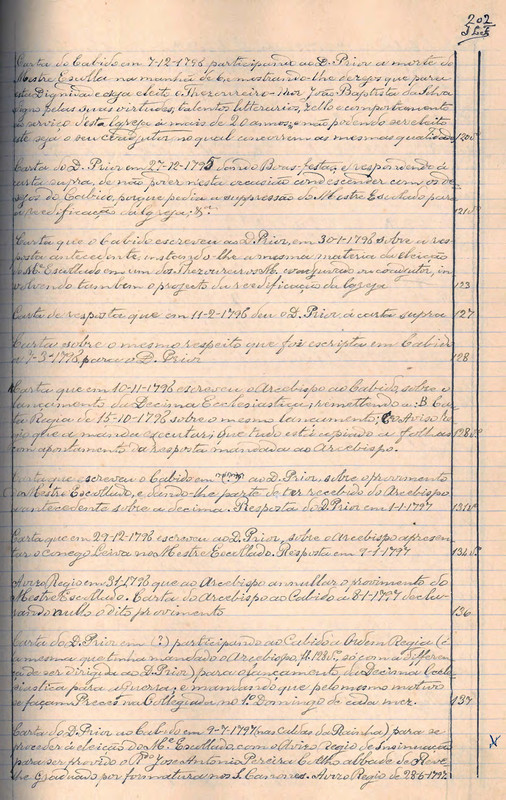 202
Carta do Cabido em 7-12-1796 participando ao D. Prior a morte do
Mestre Escolla na manhã de 6 e mostrando-lhe dezejos que para
esta Dignidade seja eleito o Thezoureiro-Mor João Baptista da Silva
digno pelas suas virtudes, talentos litterarios, zello e comportamento
no serviço d'esta Igreja á mais de 20 annos; e não podendo ser eleito
este seja o seu Coadjutor no qual concorrem as mesmas qualidades 120 v.
Carta do D. Prior em 27-12-1795 dando Boas-festas, e respondendo á
carta supra, de não poder nesta occasião condescender com os de-
zejos do Cabido, porque pedia a suppressão do Mestre Escolado para
a reedificação da Igreja; &. 121 v.
Carta que o Cabido escreveu ao D. Prior, em 30-1-1796 sobre a res-
posta antecedente, instando-lhe a mesma materia da eleição
do Me. Escollado em um dos Thezoureiros M. coadjuvado ou coadjutor, in-
volvendo tambem o projecto da reedificação da Igreja 123
Carta de resposta que em 11-2-1796 deu o D. Prior á carta supra 127
Carta sobre o mesmo respeito que foi escripta em Cabido
a 7-3-1796 para o D. Prior 128
Carta que em 10-11-1796 escreveu o Arcebispo ao Cabido, sobre o
lançamento da Decima Ecclesiastica; remettendo a: B Car-
ta Regia de 15-10-1796 sobre o mesmo lançamento; C o Aviso Re-
gio que a manda executar; que tudo está copiado a folhas 128 v.
com apontamento da resposta mandada ao Arcebispo.
Carta que escreveu o Cabido em ao D. Prior, sobre o provimento
do Mestre Escollado, e dando-lhe parte de ter recebido do Arcebispo
a antecedente sobre a decima. Resposta do D. Prior em 1-1-1797 131 v.
Carta que em 29-12-1796 escreveu ao D. Prior, sobre o Arcebispo apresen-
tar o conego Leiva no Mestre Escollado. Resposta em 7-1-1797 134 v.
Avizo Regio em 31 1796 que ao Arcebispo annullar o provimento do
Mestre Escollado. Carta do Arcebispo ao Cabido a 8-1-1797 decla-
rando nullo o dito provimento 136
Carta do D. Prior em (?) participando ao Cabido a Ordem Regia (é
a mesma que tinha mandado o Arcebispo, fl. 128 v., só com a differen-
ça de ser dirigida ao D. Prior) para o lançamento da Decima Eccle-
siastica para a guerra; e mandando que pelo mesmo motivo
se façam Preces na Collegiada no 1º Domingo de cada mez. 137
Carta do D. Prior ao Cabido em 9-7-1797 (nas Caldas da Rainha), para se
proceder á eleição do Me. Escollado. com o Avizo Regio de Insinuação
para ser provido o Rdo. Jose Antonio Pereira Coelho abbade de
Graduado por formatura nos S. Canones. Avizo Regio de 28-6-1797